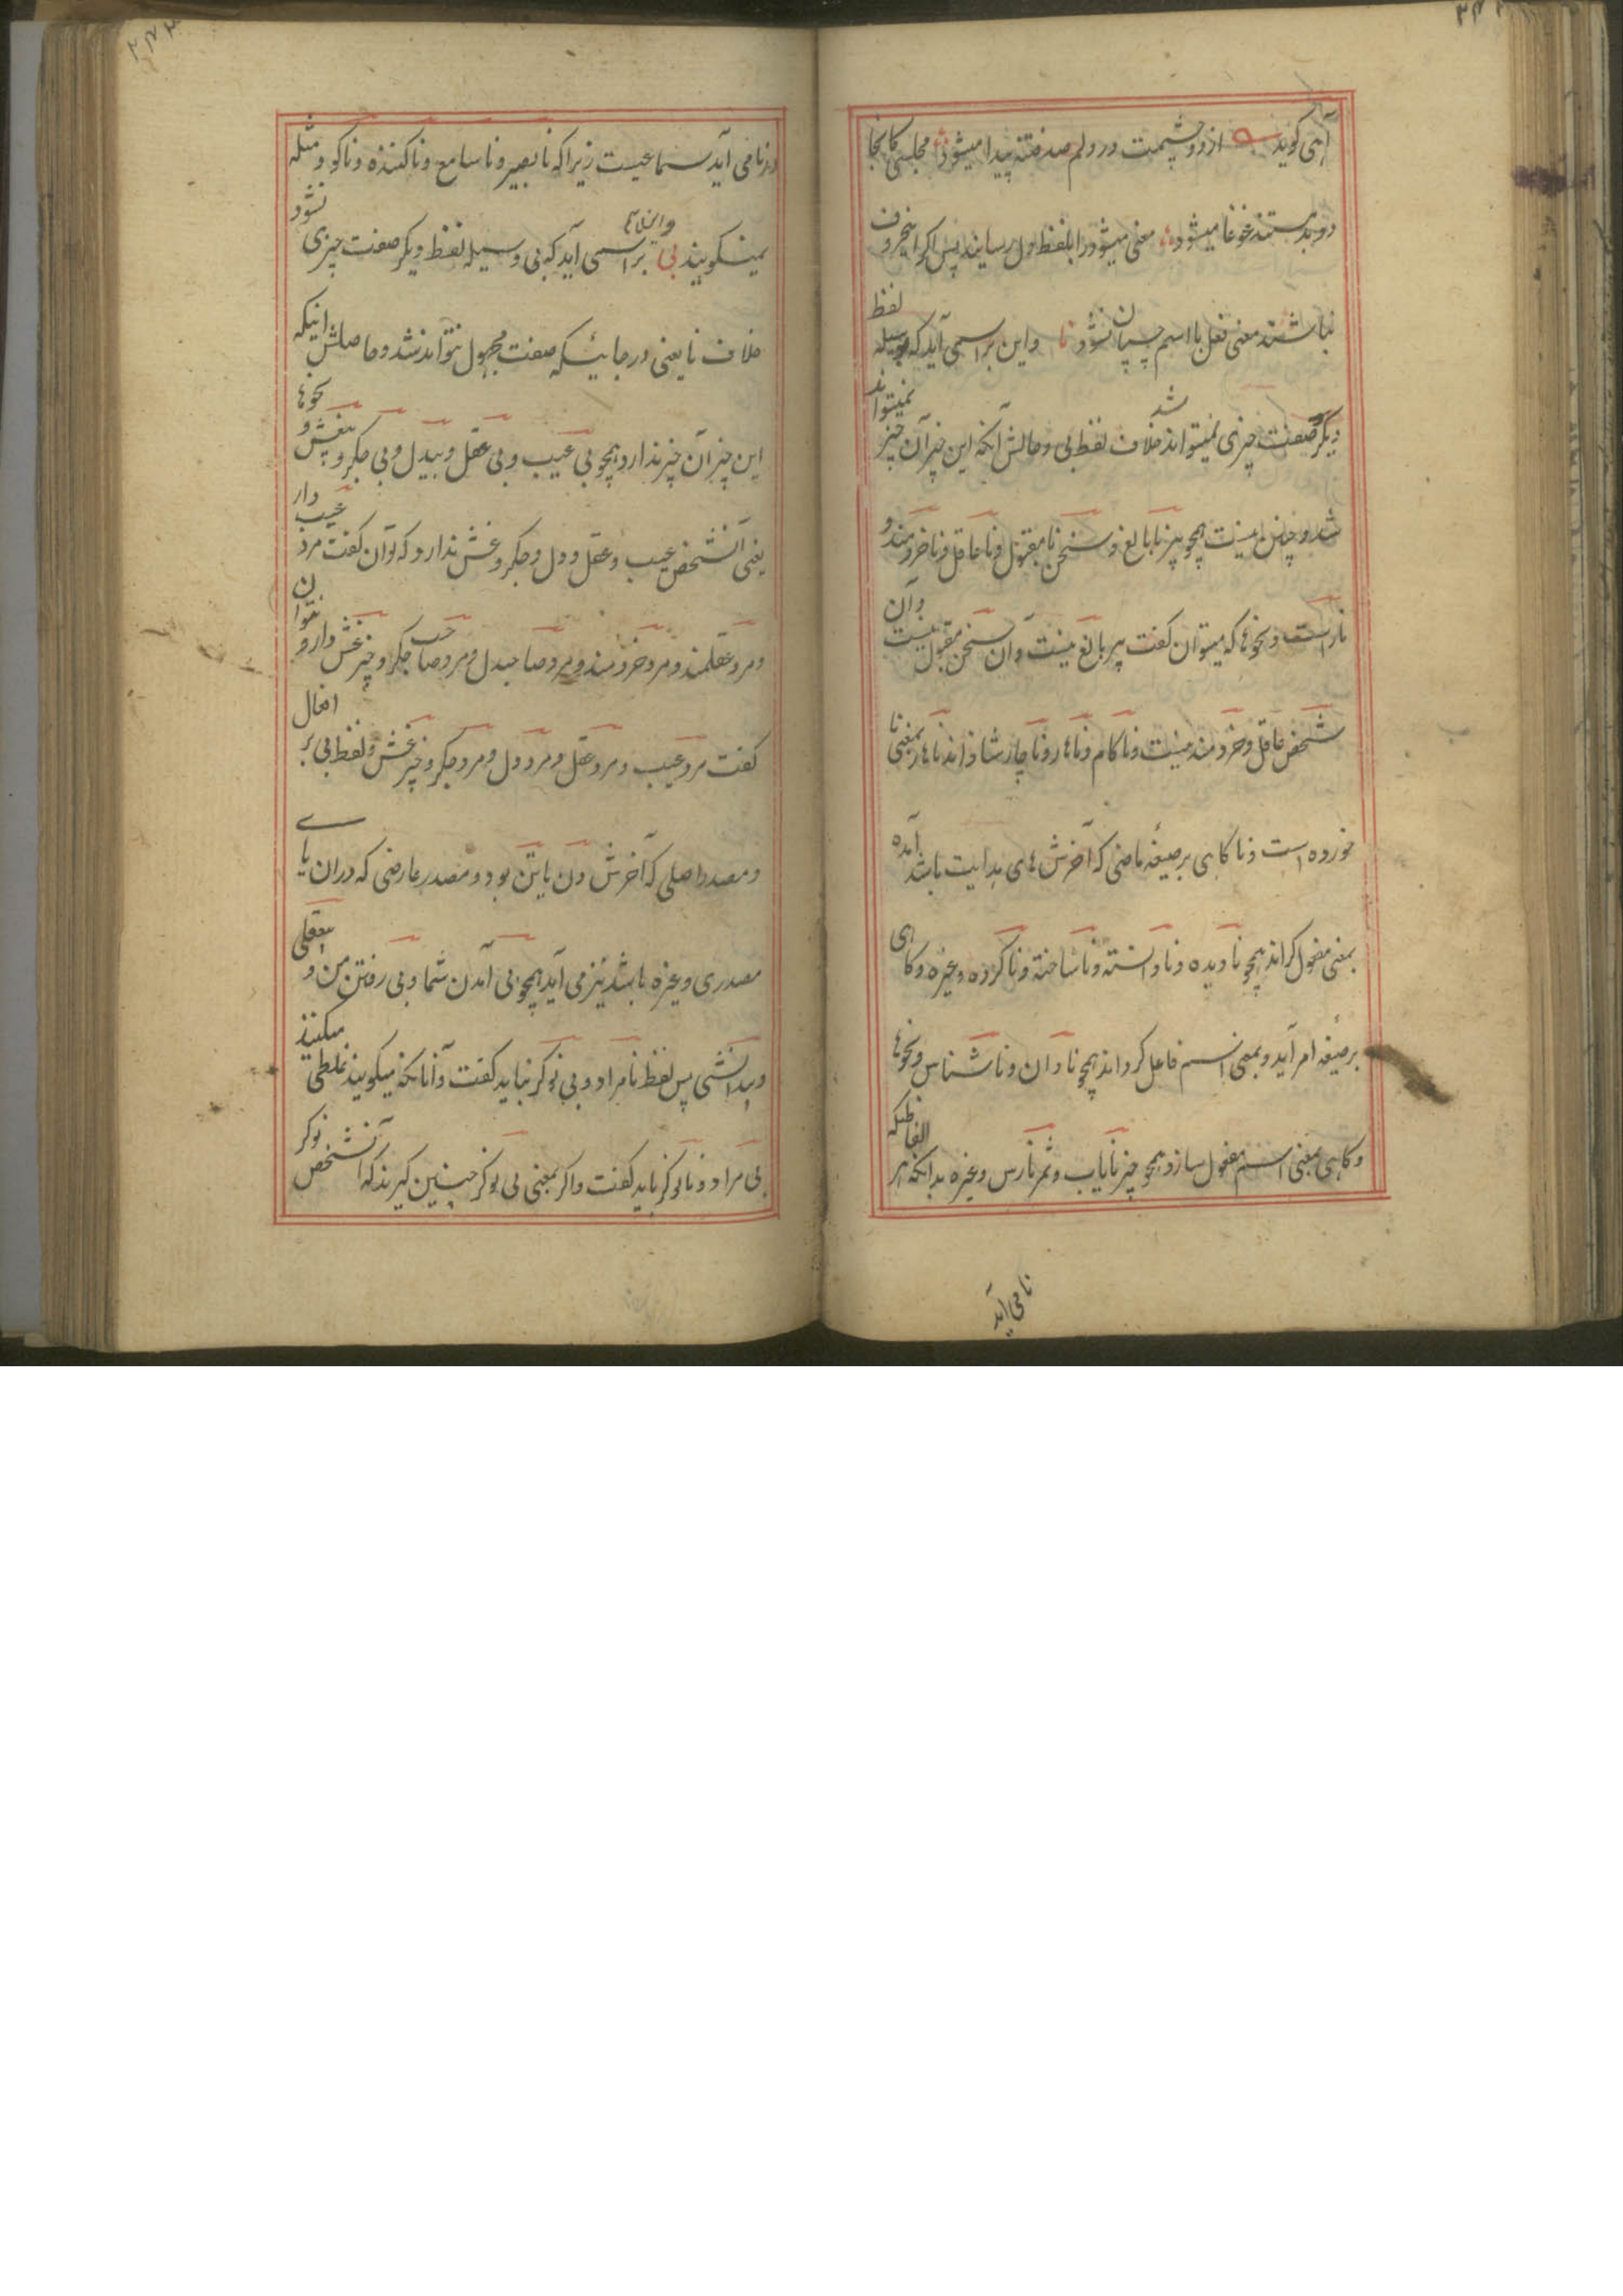 آهی گوید ازو چشمت در دلم صد فتنه پیدا میشود مجلسی کانجا
دو بدمستند غوغا میشود معنی میشود را بلفظ دل رسانید پس اگر اینحروف
نباشند معنی فعل با اسم چسپان نشود نا و این بر اسمی آید که بوسیله لفظ
دیگر صفت چیزی نمیتواند شد خلاف لفظ بی و حالش آنکه این چیز آن چیز نمیتواند
شد و چنین نیست همچو پیر نابالغ و سخن نامقبول و ناعاقل و ناخردمند و
ناراست و نحوها که میتوان گفت پیر بالغ نیست و آن سخن مقبول نیست و آن
شخص عاقل و خردمند نیست و ناکام و ناهار و ناچار شاذاند ناهار بمعنی نا
خورده است و نا گاهی بر صیغهٔ ماضی که آخرش های بدایت باشد آمده
بمعنی مفعول گرداند همچو نادیده و نادانسته و ناشناخته و ناکرده و غیره و گاهی
بر صیغهٔ امر آید و بمعنی اسم فاعل گرداند همچو نادان و ناشناس و نحوها
و گاهی بمعنی اسم مفعول سازد همچو چیز نایاب و ثمر نارس و غیره بدانکه بر الفاظیکه
نا می آید
در نا می آید سماعیست زیرا که نابصیر و ناسامع و ناکننده و ناگو و مثله
نمیگویند بی و این لفظ بر اسمی آید که بی وسیله لفظ دیگر صفت چیزی نشود
خلاف نا یعنی در جائیکه صفت مجهول نتواند شد و حاصلش اینکه
این چیز آن چیز ندارد همچو بی عیب و بی عقل و بیدل و بی جگر و بیغش و نحوها
یعنی آنشخص عیب و عقل و دل و جگر و غش ندارد که توان گفت مرد عیب دار
و مرد عقلمند و مرد خردمند و مرد صاحبدل و مرد صاحب جگر و چیز غش دار و نتوان
گفت مرد عیب و مرد عقل و مرد دل و مرد جگر و چیز غش و لفظ بی بر افعال
و مصدر اصلی که آخرش دن یا تن بود و مصدر عارضی که در آن یای
مصدری و غیره باشد نیز می آید همچو بی آمدن شما و بی رفتن من و بیعقلی
و بیدانشی پس لفظ نامراد و بی نوکر نباید گفت و آنانکه میگویند غلطی میکنند
بی مراد و نانوکر باید گفت و اگر بمعنی بی نوکر چنین گیرند که آنشخص نوکر